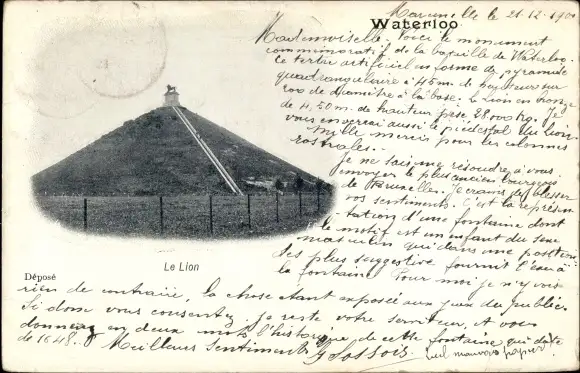 Marcinelle le 21-12-190
Waterloo
Mademoiselle. Voici le monument
commémoratif de la bataille de Waterloo.
Ce tertre artificiel en forme de pyramide
quadrangulaire a 45 m. de hauteur sur
de diamètre à la base. Le lion en bronze
de 4,50 m. de hauteur pèse 28.000 kg. Je
vous enverrai aussi le piédestal du lion.
Mille mercis pour les colonnes
rostrales.
Je ne sais me résoudre à vous
envoyer le plus ancien bourgeois
de Bruxelles. Je crains de blesser
vos sentiments. C'est la représen
tation d'une fontaine dont
le motif est un enfant du sexe
masculin qui dans une position
des plus suggestive fournit l'eau à
la fontaine. Pour moi je n'y vois
Le Lion
Déposé
rien de contraire, la chose étant exposée aux yeux du public.
Si donc vous consentez, je reste votre serviteur, et vous
donnerai en deux mots l'historique de cette fontaine qui date
de 1648. Meilleurs sentiments G Sossois
mauvais papier!